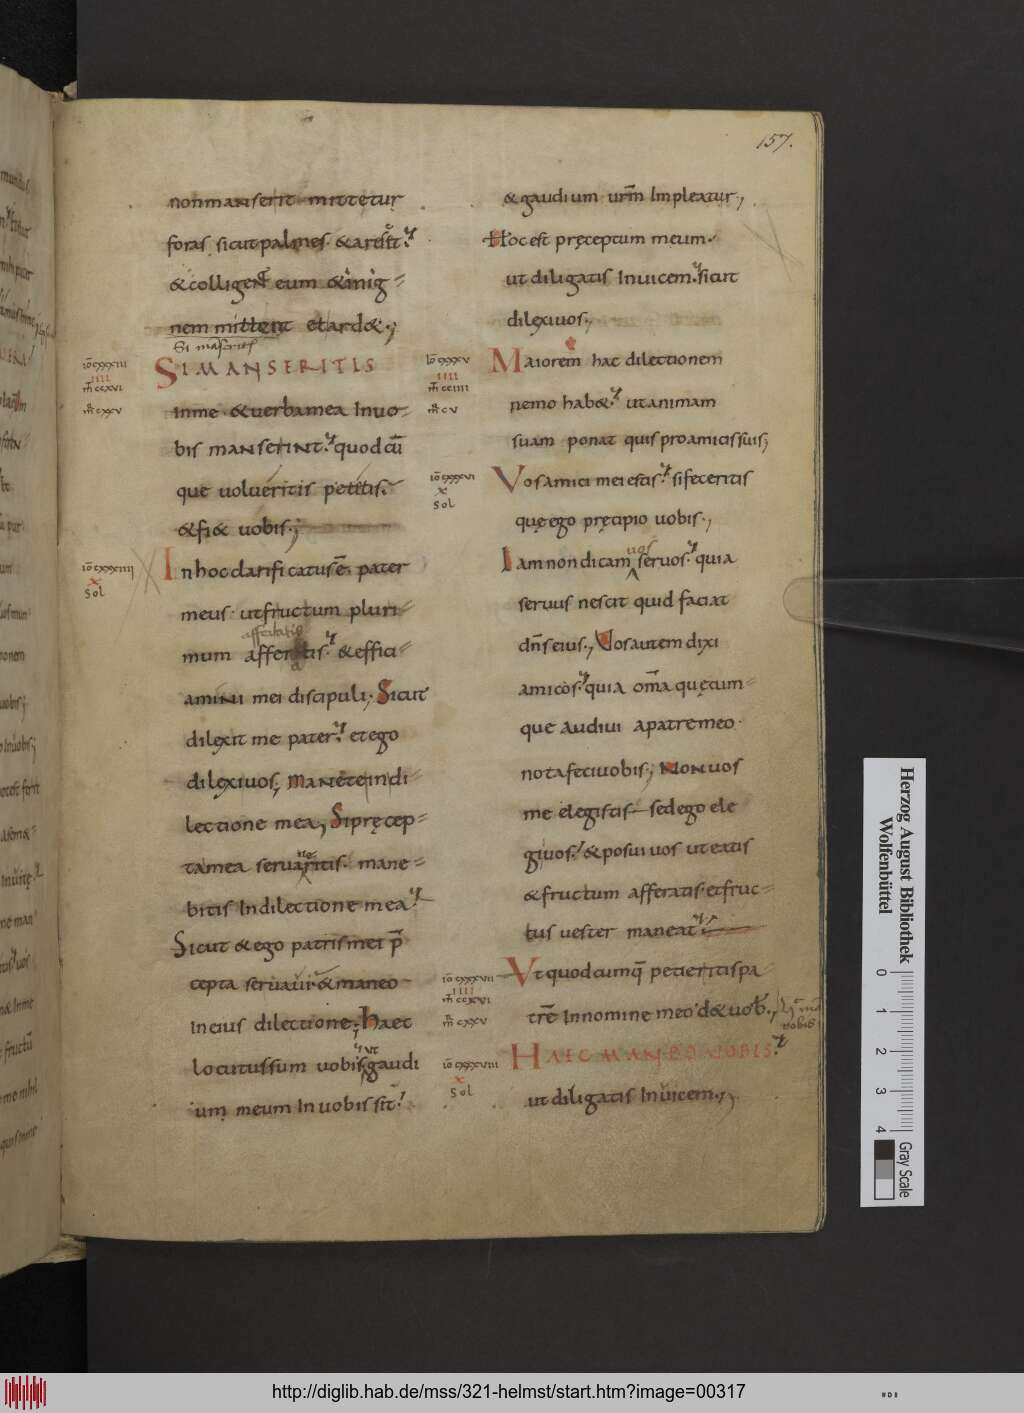 157.
non manserit mittetur
foras sicut palmes · & aresc&
& colligent eum & in ig
nem mittent et ard&.,
Si manseritis
SI MANSERITIS
Inme · & uerba mea Inuo-
bis manserint quodcū
que uolueritis petetis.
& fi& uobis.,
In hoc clarificatus ē pater
meus · ut fructum pluri-
mum afferatis. & effici-
amini mei discipuli, Sicut
dilexit me pater. et ego
dilexiuos, manete indi-
lectione mea, Si pręcep-
ta mea seruaritis. mane-
bitis Indilectione mea
Sicut & ego patris mei p̄
cepta seruaui · & maneo
In eius dilectione, Haec
locutus sum uobis ut gaudi
um meum In uobis sit
& gaudium · urm̄ Impleatur,
Hoc est pręceptum meum.
ut diligatis Inuicem sicut
dilexiuos,
Maiorem hac dilectionem
nemo hab& ut animam
suam ponat quis pro amicis suis,
Vos amici mei estis si feceritis
quę ego pręcipio uobis.,
Iam non dicam uos seruos. quia
seruus nescit quid faciat
dn̄s eius, Vos autem dixi
amicos. quia om̄a quęcum-
que audiui a patre meo.
nota feci uobis, Non uos
me elegistis sed ego ele
gi uos. & posui uos ut eatis
& fructum afferatis. et fruc-
tus uester maneat
Vt quodcumq̄ petieritis pa
trē Innomine meo d& uob.,
HAEC MANDO UOBIS
ut diligatis Inuicem.,
Herzog August Bibliothek
Wolfenbüttel
0 1 2 3 4
Gray Scale
http://diglib.hab.de/mss/321-helmst/start.htm?image=00317